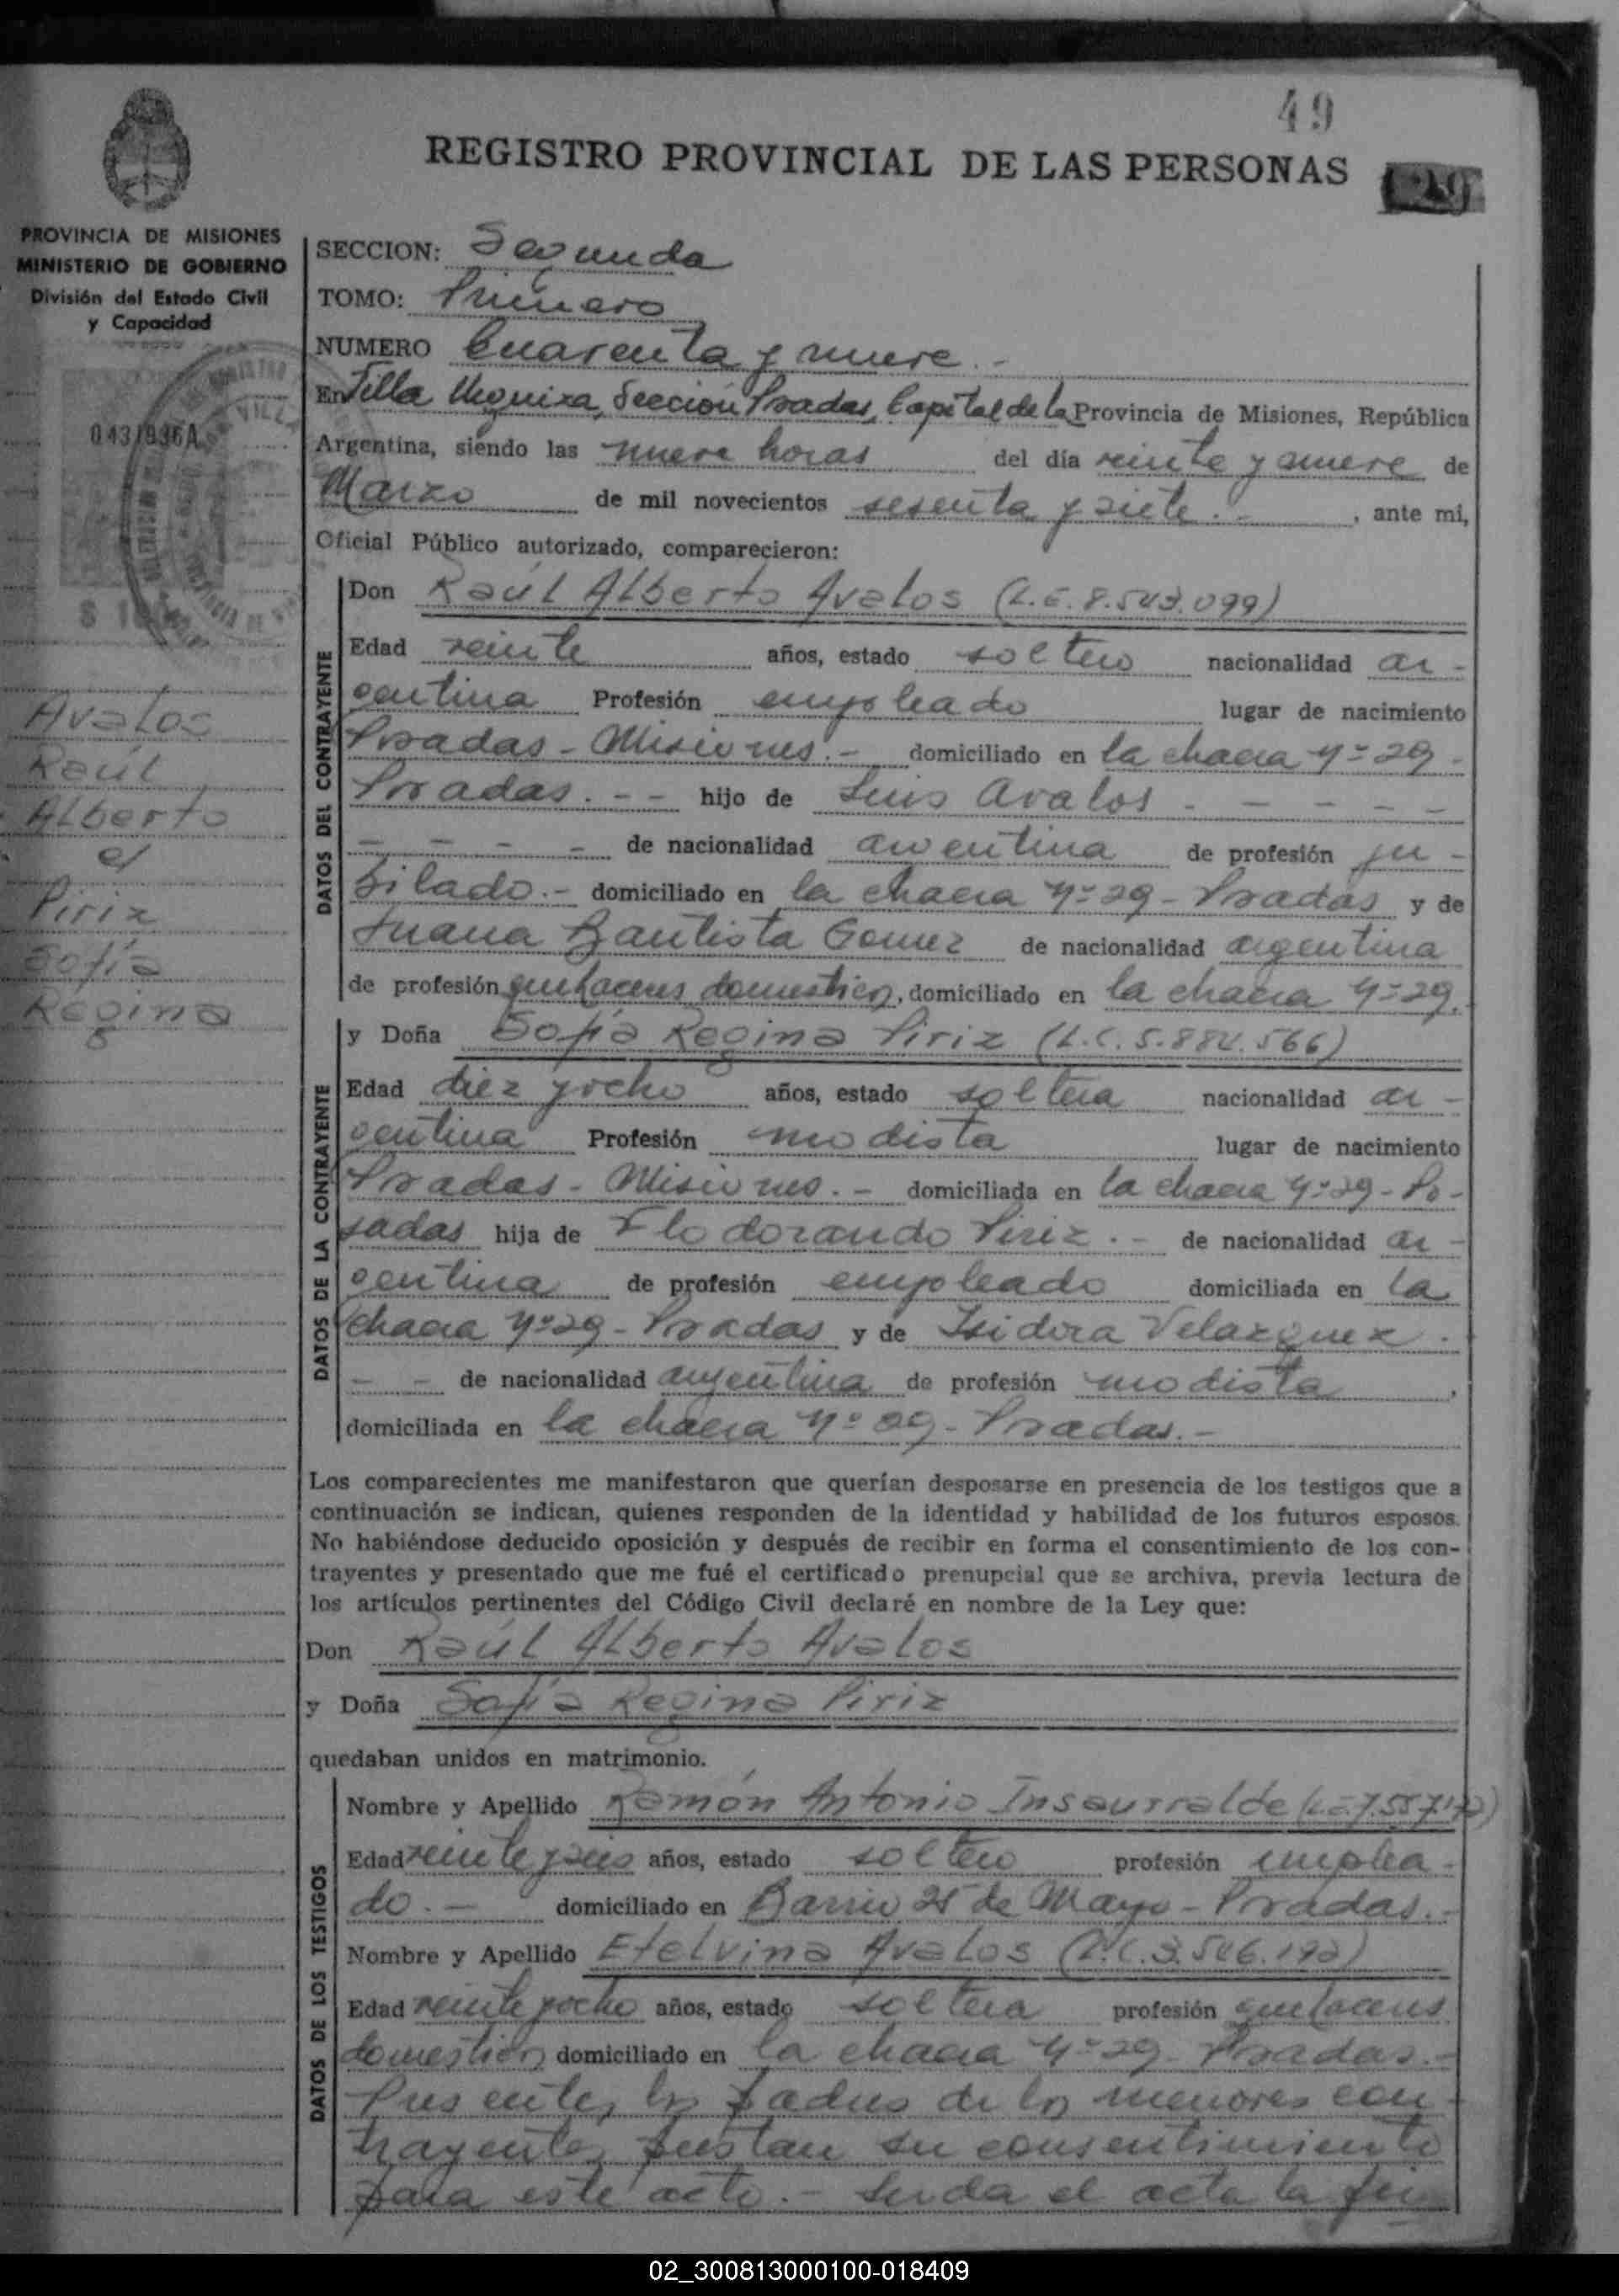 49
REGISTRO PROVINCIAL DE LAS PERSONAS
PROVINCIA DE MISIONES
MINISTERIO DE GOBIERNO
División del Estado Civil
y Capacidad
043/936A
Avalos
Raúl
Alberto
c/
Piriz
Sofía
Regina
SECCION: Segunda
TOMO: Primero
NUMERO Cuarenta y nueve.-
En Villa Urquiza, Sección Posadas, Capital de la Provincia de Misiones, República
Argentina, siendo las nueve horas del día veinte y nueve de
Marzo de mil novecientos sesenta y siete.- , ante mi,
Oficial Público autorizado, comparecieron:
DATOS DEL CONTRAYENTE
Don Raúl Alberto Avalos (L.E. 8.543.099)
Edad veinte años, estado soltero nacionalidad ar-
gentina Profesión empleado lugar de nacimiento
Posadas - Misiones.- domiciliado en la chacra Nº 29-
Posadas.-- hijo de Luis Avalos.-----
---- de nacionalidad argentina de profesión ju-
bilado.- domiciliado en la chacra Nº 29 - Posadas y de
Juana Bautista Gomez de nacionalidad argentina
de profesión quehaceres domesticos, domiciliado en la chacra Nº 29.
DATOS DE LA CONTRAYENTE
y Doña Sofía Regina Piriz (L.C. 5.884.566)
Edad diez y ocho años, estado soltera nacionalidad ar-
gentina Profesión modista lugar de nacimiento
Posadas - Misiones.- domiciliada en la chacra Nº 29 - Po-
sadas hija de Flodorando Piriz.- de nacionalidad ar-
gentina de profesión empleado domiciliada en la
chacra Nº 29 - Posadas y de Isidora Velazquez.
-- de nacionalidad argentina de profesión modista ,
domiciliada en la chacra Nº 29 - Posadas.-
Los comparecientes me manifestaron que querían desposarse en presencia de los testigos que a
continuación se indican, quienes responden de la identidad y habilidad de los futuros esposos.
No habiéndose deducido oposición y después de recibir en forma el consentimiento de los con-
trayentes y presentado que me fué el certificado prenupcial que se archiva, previa lectura de
los artículos pertinentes del Código Civil declaré en nombre de la Ley que:
Don Raúl Alberto Avalos
y Doña Sofía Regina Piriz
quedaban unidos en matrimonio.
DATOS DE LOS TESTIGOS
Nombre y Apellido Ramón Antonio Insaurralde
Edad veinte y seis años, estado soltero profesión emplea-
do.- domiciliado en Barrio 25 de Mayo - Posadas.-
Nombre y Apellido Etelvina Avalos (L.C. 3.546.192)
Edad veinte y ocho años, estado soltera profesión quehaceres
domesticos domiciliado en la chacra Nº 29 - Posadas.-
Presentes los padres de los menores con-
trayentes prestan su consentimiento
para este acto.- Leida el acta la fir
02_300813000100-018409